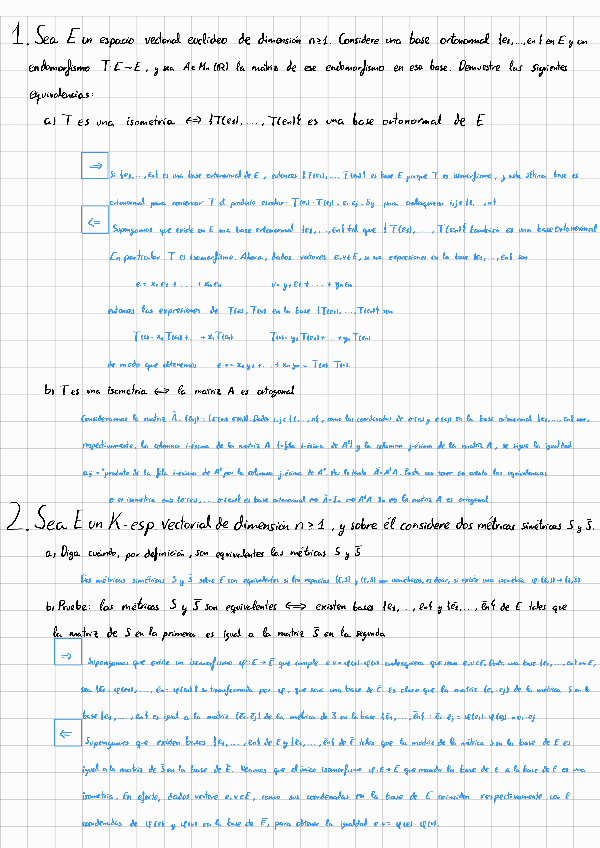 1. Sea E un espacio vectorial euclídeo de dimensión n≥1. Considere una base ortonormal {e1,...,en} en E y un
endomorfismo T: E→E, y sea A∈Mn(ℝ) la matriz de ese endomorfismo en esa base. Demuestre las siguientes
equivalencias:
a) T es una isometría ⟺ {T(e1),...,T(en)} es una base ortonormal de E
⇒
Si {e1,...,en} es una base ortonormal de E, entonces {T(e1),...,T(en)} es base E porque T es isomorfismo, y esta última base es
ortonormal para conservar T el producto escalar: T(ei)·T(ej) = ei·ej = δij para cualesquiera i,j∈{1,...,n}
⇐
Supongamos que existe en E una base ortonormal {e1,...,en} tal que {T(e1),...,T(en)} también es una base ortonormal
En particular T es isomorfismo. Ahora, dados vectores e,v∈E, si sus expresiones en la base {e1,...,en} son
e = x1e1 + ... + xnen v = y1e1 + ... + ynen
entonces las expresiones de T(e), T(v) en la base {T(e1),...,T(en)} son
T(e) = x1T(e1) + ... + xnT(en) T(v) = y1T(e1) + ... + ynT(en)
de modo que obtenemos e·v = x1y1 + ... + xnyn = T(e)·T(v).
b) T es una isometría ⟺ la matriz A es ortogonal
Consideramos la matriz Ā = (āij) = (σ(ei)·σ(ej)). Dados i,j∈{1,...,n}, como las coordenadas de σ(ei) y σ(ej) en la base ortonormal {e1,...,en} son,
respectivamente, la columna i-ésima de la matriz A (=fila i-ésima de Aᵗ) y la columna j-ésima de la matriz A, se sigue la igualdad
āij = "producto de la fila i-ésima de Aᵗ por la columna j-ésima de A". Por lo tanto Ā = AᵗA. Basta con tener en cuenta las equivalencias
σ es isometría ⟺ {σ(e1),...,σ(en)} es base ortonormal ⟺ Ā = In ⟺ AᵗA = In ⟺ la matriz A es ortogonal
2. Sea E un K-esp vectorial de dimensión n≥1, y sobre él considere dos métricas simétricas S y S̄.
a) Diga cuándo, por definición, son equivalentes las métricas S y S̄
Dos métricas simétricas S y S̄ sobre E son equivalentes si los espacios (E,S) y (E,S̄) son isométricos, es decir, si existe una isometría φ: (E,S)→(E,S̄)
b) Pruebe: las métricas S y S̄ son equivalentes ⟺ existen bases {e1,...,en} y {ē1,...,ēn} de E tales que
la matriz de S en la primera es igual a la matriz S̄ en la segunda
⇒
Supongamos que existe un isomorfismo φ: E→Ē que cumple e·v = φ(e)·φ(v) cualesquiera que sean e,v∈E. Dada una base {e1,...,en} en E,
sea {ē1 = φ(e1),..., ēn = φ(en)} su transformada por φ, que será una base de Ē. Es claro que la matriz (ei·ej) de la métrica S en la
base {e1,...,en} es igual a la matriz (ēi·ēj) de la métrica de S̄ en la base {ē1,...,ēn}: ēi·ēj = φ(ei)·φ(ej) = ei·ej
⇐
Supongamos que existen bases {e1,...,en} de E y {ē1,...,ēn} de Ē tales que la matriz de la métrica S en la base de E es
igual a la matriz de S̄ en la base de Ē. Veamos que el único isomorfismo φ: E→Ē que manda la base de E a la base de Ē es una
isometría. En efecto, dados vectores e,v∈E, como sus coordenadas en la base de E coinciden respectivamente con l
coordenadas de φ(e) y φ(v) en la base de Ē, para obtener la igualdad e·v = φ(e)·φ(v).